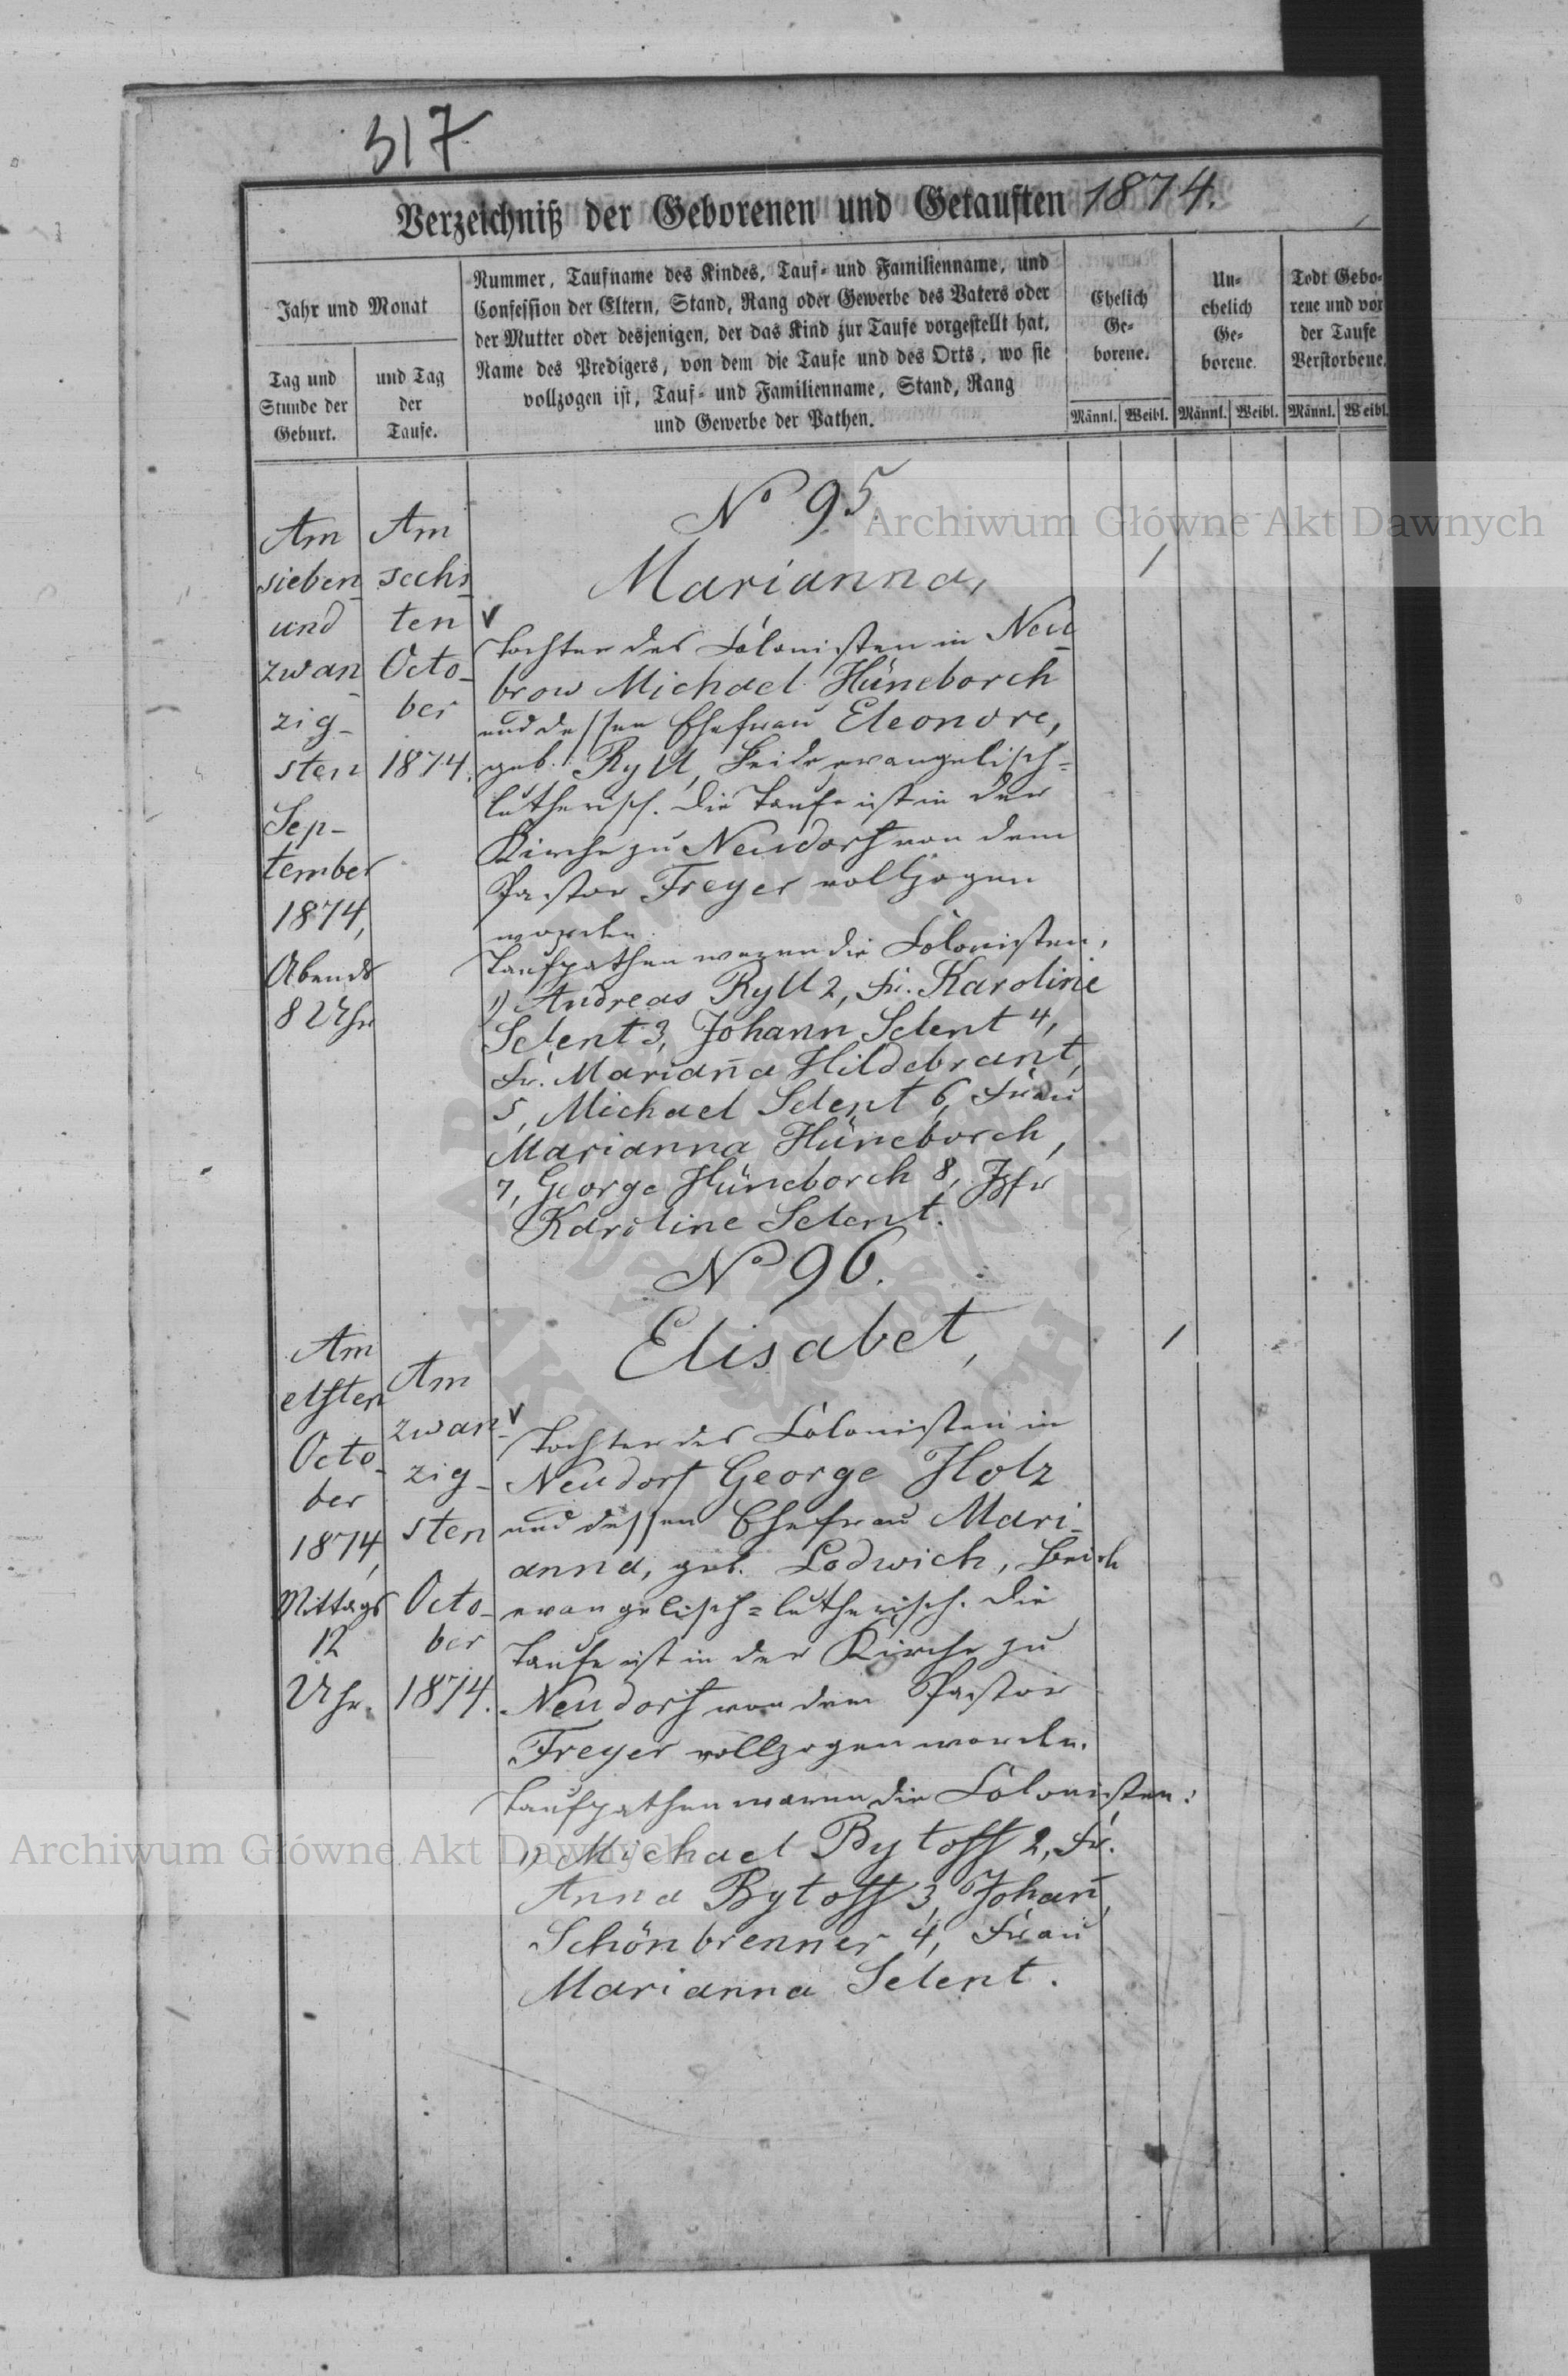 317
Verzeichniß der Geborenen und Getauften 1874.
Jahr und Monat
Tag und
Stunde der
Geburt.
und Tag
der
Taufe.
Nummer, Taufname des Kindes, Tauf- und Familienname, und
Confession der Eltern, Stand, Rang oder Gewerbe des Vaters oder
der Mutter oder desjenigen, der das Kind zur Taufe vorgestellt hat,
Name des Predigers, von dem die Taufe und des Orts, wo sie
vollzogen ist, Tauf- und Familienname, Stand, Rang
und Gewerbe der Pathen.
Ehelich
Ge-
borene.
Un-
ehelich
Ge-
borene.
Todt Gebo-
rene und vor
der Taufe
Verstorbene.
Männl. Weibl. Männl. Weibl. Männl. Weibl.
Am
sieben
und
zwan-
zig-
sten
Sep-
tember
1874,
Abends
8 Uhr
Am
sechs-
ten
Octo-
ber
1874.
No 95.
Marianna,
Tochter des Colonisten in Neu-
brow Michael Hüneborch
und dessen Ehefrau Eleonore,
geb. Ryll, Beide evangelisch-
lutherisch. Die Taufe ist in der
Kirche zu Neudorf von dem
Pastor Freyer vollzogen
worden.
Taufpathen waren die Colonisten,
1) Andreas Ryll 2, Fr. Karoline
Selent 3, Johann Selent 4,
Fr. Marian̄a Hildebrant,
5, Michael Selent 6, Frau
Marianna Hüneborch,
7, George Hüneborch 8, Jgfr
Karoline Selent.
1
Am
elften
Octo-
ber
1874,
Mittags
12
Uhr.
Am
zwan-
zig-
sten
Octo-
ber
1874.
No 96.
Elisabet,
Tochter des Colonisten in
Neudorf George Holz
und dessen Ehefrau Mari-
anna, geb. Lodwich, Beide
evangelisch-lutherisch. Die
Taufe ist in der Kirche zu
Neudorf von dem Pastor
Freyer vollzogen worden.
Taufpathen waren die Colonisten:
1) Michael Bytoff 2, Fr.
Anna Bytoff 3, Johan̄
Schönbrenner 4, Frau
Marianna Selent.
1
Archiwum Główne Akt Dawnych
Archiwum Główne Akt Dawnych